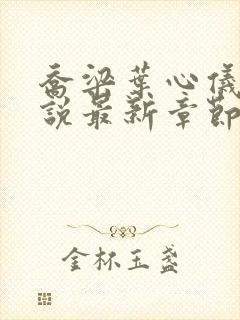 喬梁葉心儀
說最新章節
金杯玉盞